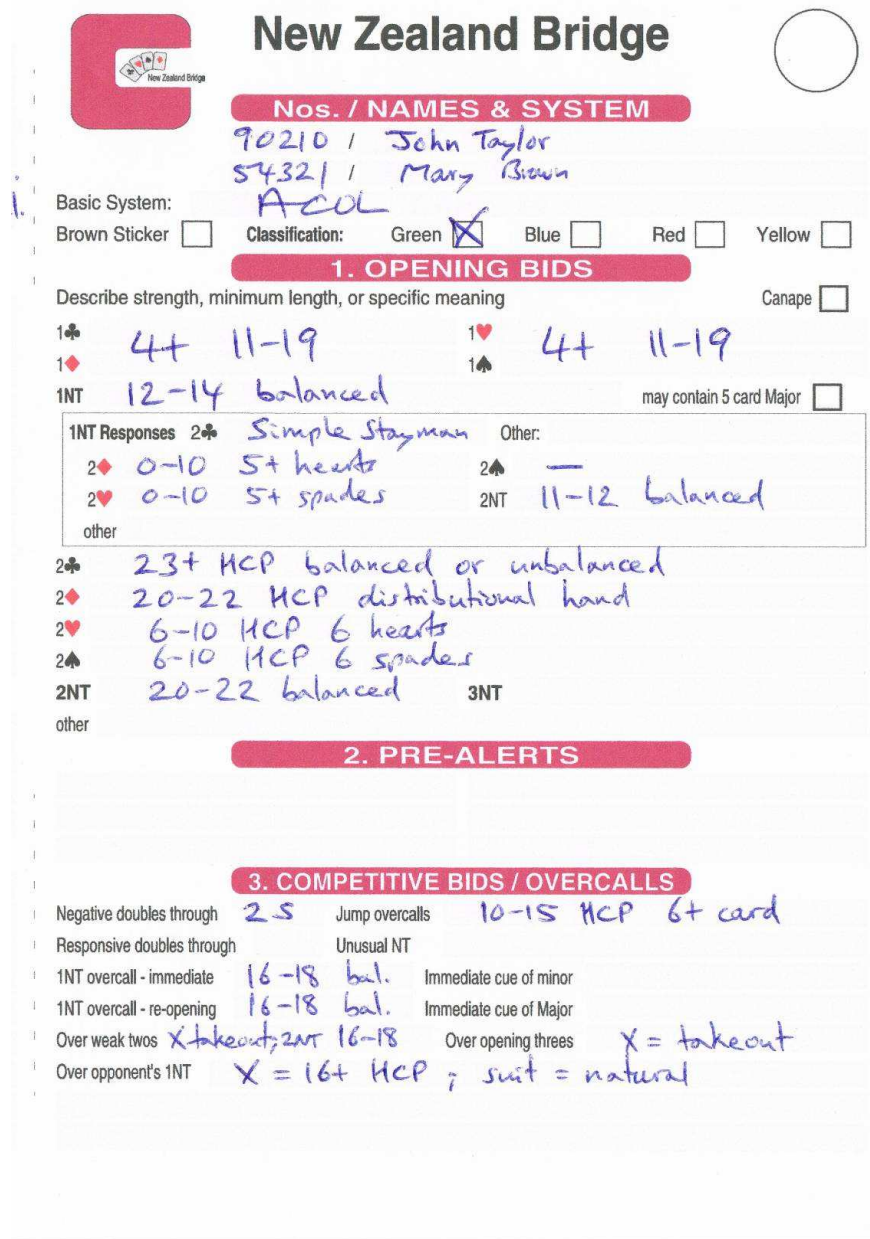 New Zealand Bridge
New Zealand Bridge
Nos. / NAMES & SYSTEM
90210 / John Taylor
54321 / Mary Brown
Basic System: ACOL
Brown Sticker Classification: Green X Blue Red Yellow
1. OPENING BIDS
Describe strength, minimum length, or specific meaning Canape
1♣ 1♦ 4+ 11-19 1♥ 1♠ 4+ 11-19
1NT 12-14 balanced may contain 5 card Major
1NT Responses 2♣ Simple Stayman Other:
2♦ 0-10 5+ hearts 2♠ —
2♥ 0-10 5+ spades 2NT 11-12 balanced
other
2♣ 23+ HCP balanced or unbalanced
2♦ 20-22 HCP distributional hand
2♥ 6-10 HCP 6 hearts
2♠ 6-10 HCP 6 spades
2NT 20-22 balanced 3NT
other
2. PRE-ALERTS
3. COMPETITIVE BIDS / OVERCALLS
Negative doubles through 2S Jump overcalls 10-15 HCP 6+ card
Responsive doubles through Unusual NT
1NT overcall - immediate 16-18 bal. Immediate cue of minor
1NT overcall - re-opening 16-18 bal. Immediate cue of Major
Over weak twos X takeout; 2NT 16-18 Over opening threes X = takeout
Over opponent's 1NT X = 16+ HCP ; suit = natural